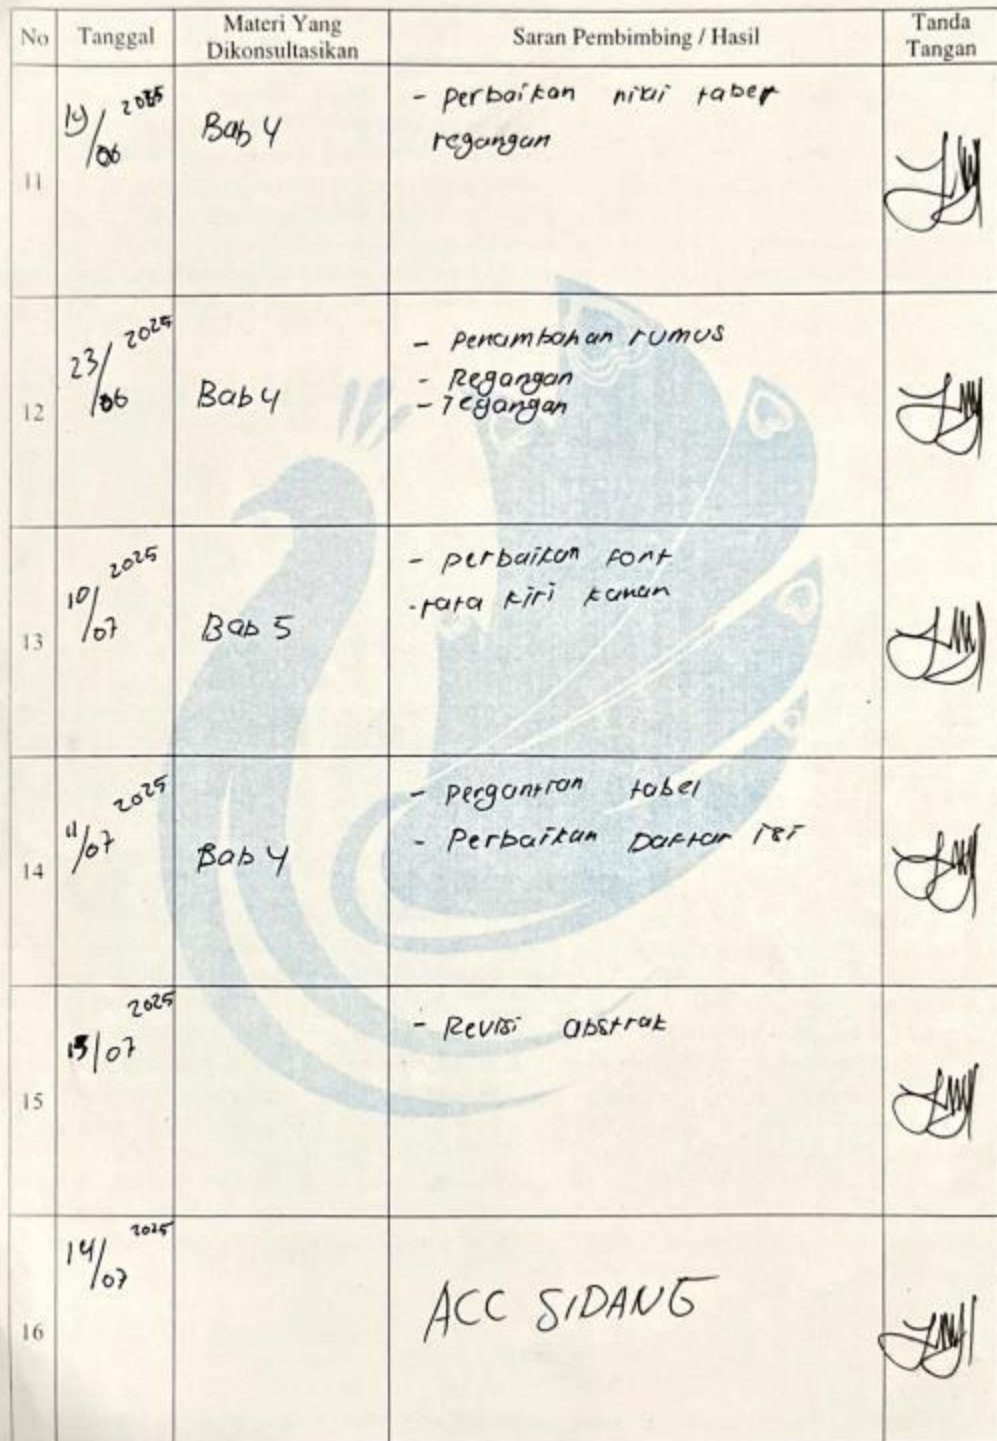 No Tanggal Materi Yang Dikonsultasikan Saran Pembimbing / Hasil Tanda Tangan
11
19/06 2025
Bab 4
- perbaikan nilai tabel
regangan
12
23/06 2025
Bab 4
- penambahan rumus
- Regangan
- Tegangan
13
10/07 2025
Bab 5
- perbaikan font
- rata kiri kanan
14
11/07 2025
Bab 4
- pergantian tabel
- Perbaikan Daftar isi
15
/07 2025
- Revisi abstrak
16
14/07 2025
ACC SIDANG